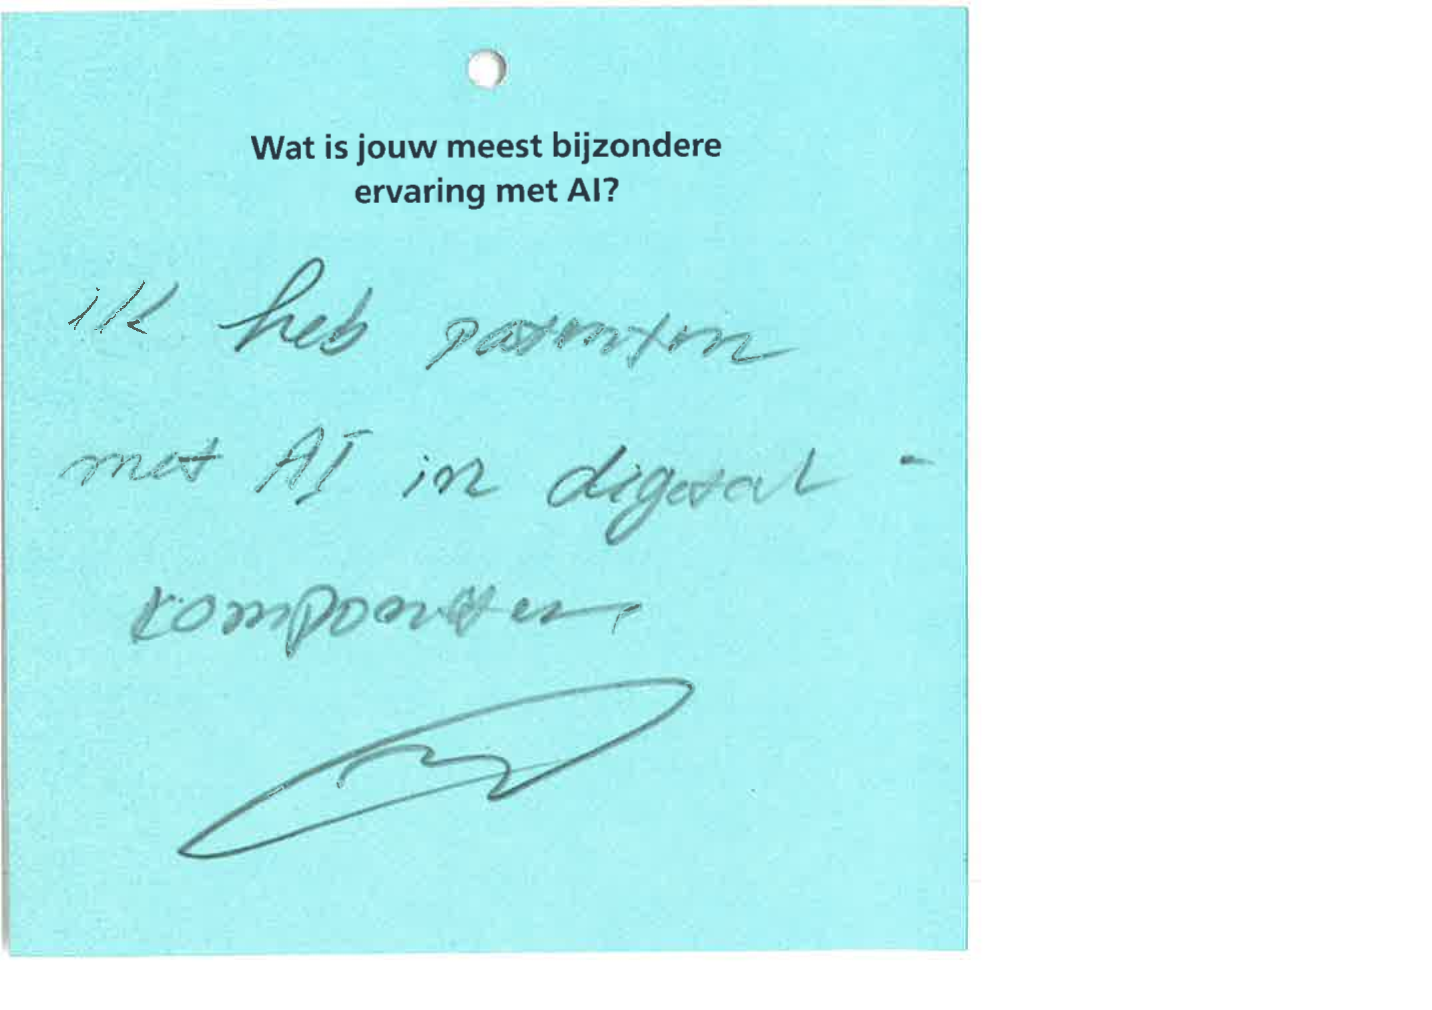 Wat is jouw meest bijzondere
ervaring met AI?
ik heb patenten
met AI in digitaal -